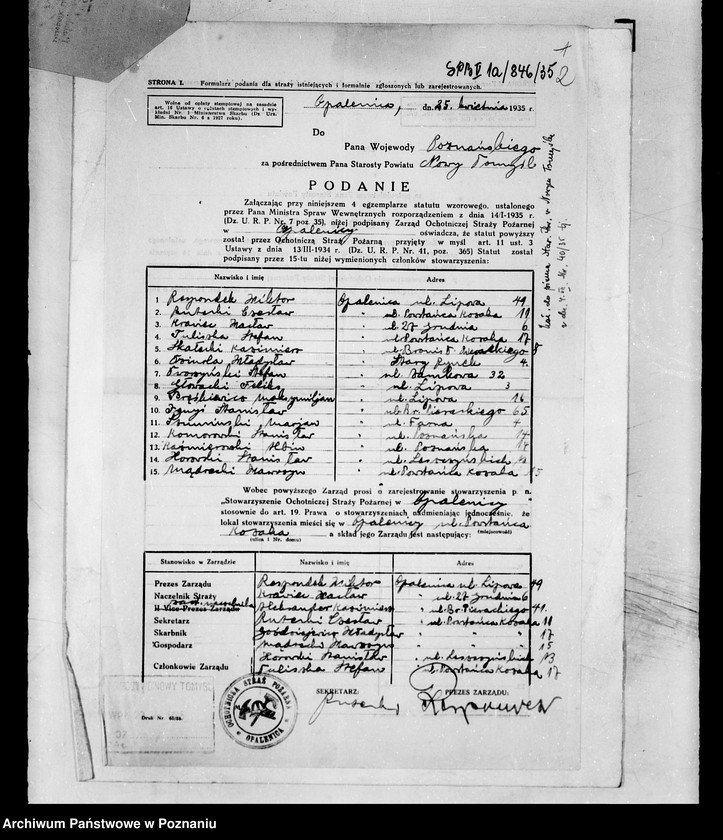 SPBII 1a/846/35
2
STRONA I. Formularz podania dla straży istniejących i formalnie zgłoszonych lub zarejestrowanych.
Wolne od opłaty stemplowej na zasadzie
art. 16 Ustawy o opłatach stemplowych i wy-
kładni Nr. 7 Ministerstwa Skarbu (Dz. Urz.
Min. Skarbu Nr. 6 z 1927 roku).
Opalenica, dn. 25. kwietnia 1935 r.
Do
Pana Wojewody Poznańskiego
za pośrednictwem Pana Starosty Powiatu Nowy Tomyśl
PODANIE
Załączając przy niniejszem 4 egzemplarze statutu wzorowego, ustalonego
przez Pana Ministra Spraw Wewnętrznych rozporządzeniem z dnia 14/I-1935 r.
(Dz. U. R. P. Nr. 7 poz. 35), niżej podpisany Zarząd Ochotniczej Straży Pożarnej
w Opalenicy oświadcza, że statut powyższy
został przez Ochotniczą Straż Pożarną przyjęty w myśl art. 11 ust. 3
Ustawy z dnia 13/III-1934 r. (Dz. U. R. P. Nr. 41, poz. 365) Statut został
podpisany przez 15-tu niżej wymienionych członków stowarzyszenia:
Nazwisko i imię Adres
1. Respondek Wiktor Opalenica ul. Lipowa 49
2. Ruterki Czesław " ul. Powstańca Kozaka 11
3. Krawiec Wacław " ul. 27 Grudnia 6
4. Tuliszka Stefan " ul. Powstańca Kozaka 17
5. Skałecki Kazimierz " ul. Bronisł. Pierackiego 8
6. Władysław " Stary Rynek 4.
7. Tworzyński Stefan " ul. Zamkowa 32
8. Głowacki Feliks " ul. Lipowa 3
9. Maksymiljan " ul. Lipowa 16
10. Stanisław " ul. Br. Pierackiego 65
11. Marjan " ul. Farna 4
12. Komorowski Stanisław " ul. Poznańska 14
13. Kaźmierowski Albin " ul. Poznańska
14. Horowski Stanisław " ul. Leszczyńskich 13
15. Mądracki Wawrzyn " ul. Powstańca Kozaka 15
Wobec powyższego Zarząd prosi o zarejestrowanie stowarzyszenia p. n.
„Stowarzyszenie Ochotniczej Straży Pożarnej w Opalenicy
stosownie do art. 19. Prawa o stowarzyszeniach nadmieniając jednocześnie, że
lokal stowarzyszenia mieści się w Opalenicy ul. Powstańca
(miejscowość)
Kozaka a skład jego Zarządu jest następujący:
(ulica i Nr. domu)
Stanowisko w Zarządzie Nazwisko i imię Adres
Prezes Zarządu Respondek Wiktor Opalenica ul. Lipowa 49
Naczelnik Straży Krawiec Wacław " ul. 27 Grudnia 6
II Vice-Prezes Zarządu Aleksander Kazimierz " ul. Br. Pierackiego 41.
Sekretarz Ruterki Czesław " ul. Powstańca Kozaka 11
Skarbnik Władysław " " 17
Gospodarz Mądracki Wawrzyn " " 15
Horowski Stanisław " ul. Leszczyńskich 13
Członkowie Zarządu Tuliszka Stefan ul. Powstańca Kozaka 17
SEKRETARZ: PREZES ZARZĄDU:
OCHOTNICZA STRAŻ POŻARNA
OPALENICA
Druk Nr.
Archiwum Państwowe w Poznaniu